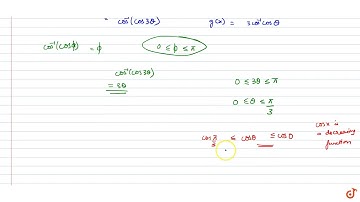 = cos⁻¹(cos3θ) g(x) = 3cos⁻¹cosθ
cos⁻¹(cosϕ) = ϕ 0 ≤ ϕ ≤ π
cos⁻¹(cos3θ)
= 3θ
0 ≤ 3θ ≤ π
0 ≤ θ ≤ π/3
cos π/3 ≤ cosθ ≤ cos0
cosx is
decreasing
function